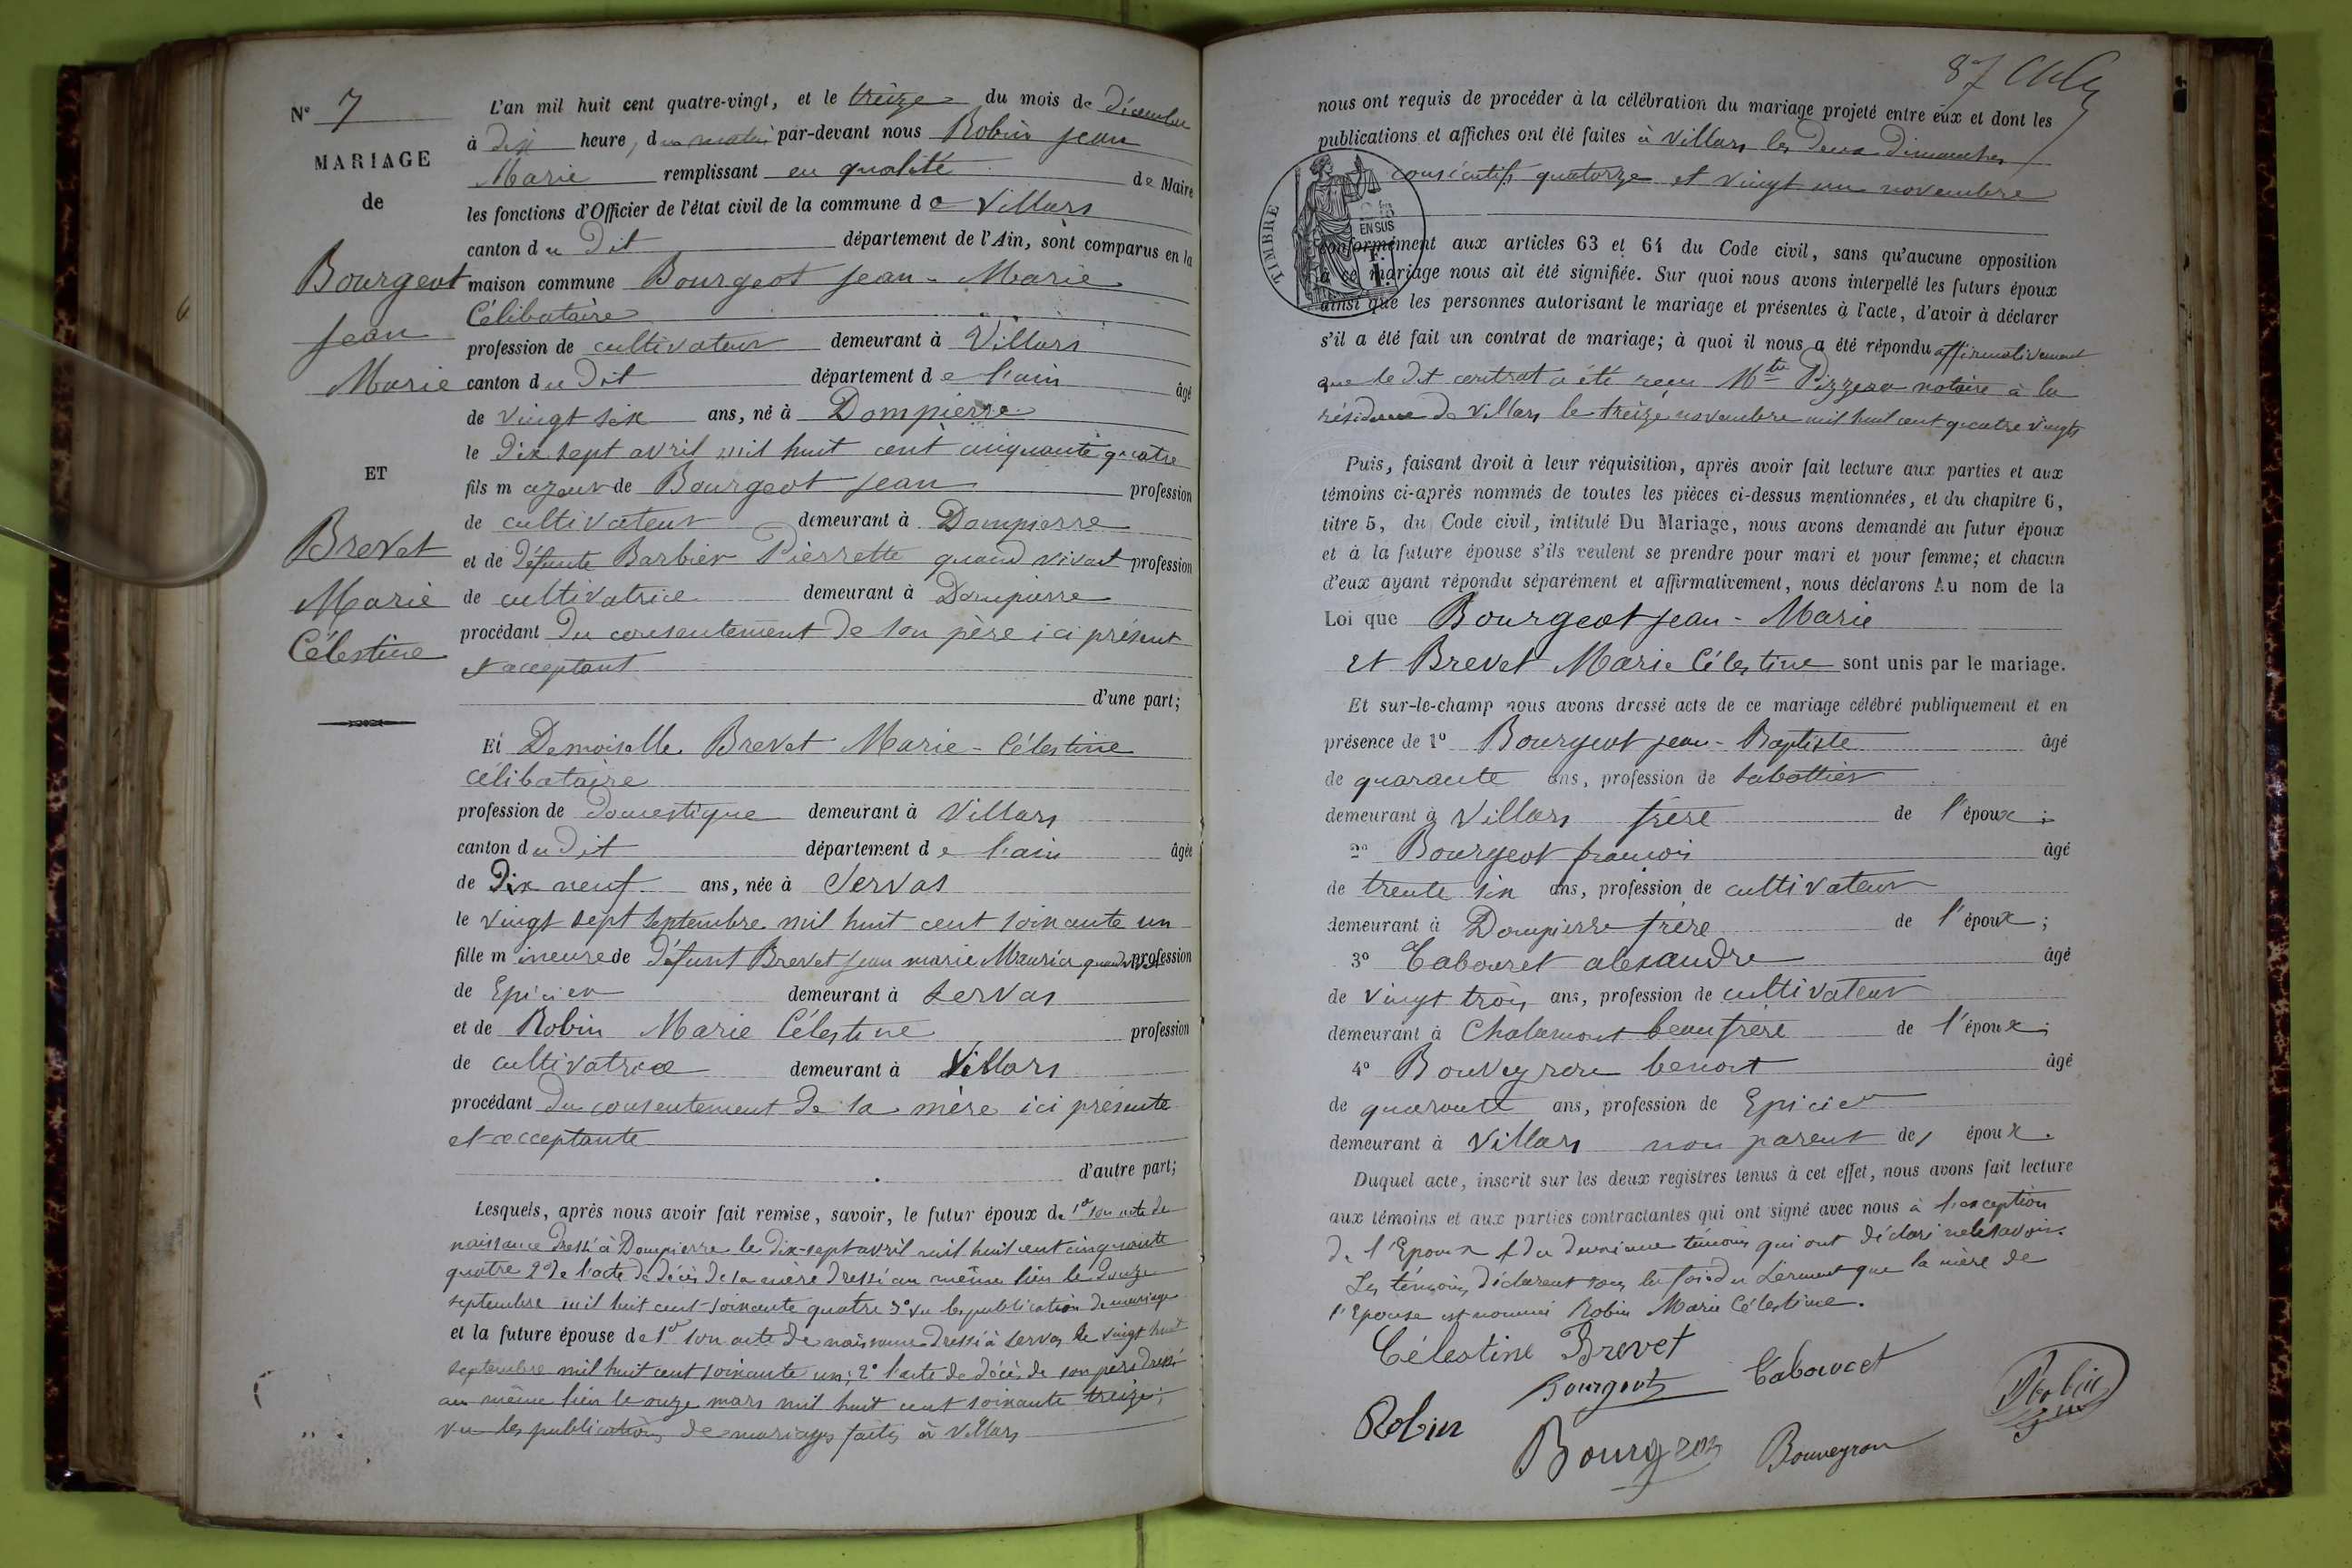 N° 7
MARIAGE
de
Bourgeot
Jean
Marie
ET
Brevet
Marie
Célestine
L'an mil huit cent quatre-vingt, et le treize du mois de décembre
à dix heure, du matin par-devant nous Robin Jean
Marie remplissant en qualité de Maire
les fonctions d'Officier de l'état civil de la commune de Villars
canton du dit département de l'Ain, sont comparus en la
maison commune Bourgeot Jean-Marie
Célibataire
profession de cultivateur demeurant à Villars
canton du dit département de l'ain âgé
de vingt six ans, né à Dompierre
le dix sept avril mil huit cent cinquante quatre
fils majeur de Bourgeot Jean profession
de cultivateur demeurant à Dompierre
et de défunte Barbier Pierrette quand vivait profession
de cultivatrice demeurant à Dompierre
procédant du consentement de son père ici présent
et acceptant
d'une part;
Et Demoiselle Brevet Marie-Célestine
célibataire
profession de domestique demeurant à Villars
canton du dit département de l'ain âgée
de Dix neuf ans, née à Servas
le vingt sept septembre mil huit cent soixante un
fille mineure de défunt Brevet Jean marie Mauria quand profession
de Epicier demeurant à Servas
et de Robin Marie Célestine profession
de cultivatrice demeurant à Villars
procédant du consentement de sa mère ici présente
et acceptante
d'autre part;
Lesquels, après nous avoir fait remise, savoir, le futur époux de 1° son acte de
naissance dressé à Dompierre le dix-sept avril mil huit cent cinquante
quatre 2° de l'acte de décès de sa mère dressé au même lieu le douze
septembre mil huit cent soixante quatre 3° vu la publication de mariage
et la future épouse de 1° son acte de naissance dressé à Servas le vingt huit
septembre mil huit cent soixante un; 2° l'acte de décès de son père dressé
au même lieu le onze mars mil huit cent soixante treize;
vu les publications de mariages faites à Villars
87
nous ont requis de procéder à la célébration du mariage projeté entre eux et dont les
publications et affiches ont été faites à Villars les deux dimanches
consécutifs quatorze et vingt un novembre
TIMBRE
EN SUS
conformément aux articles 63 et 64 du Code civil, sans qu'aucune opposition
à ce mariage nous ait été signifiée. Sur quoi nous avons interpellé les futurs époux
ainsi que les personnes autorisant le mariage et présentes à l'acte, d'avoir à déclarer
s'il a été fait un contrat de mariage; à quoi il nous a été répondu affirmativement
que le dit contrat a été reçu Mtre Pizzera notaire à la
résidence de Villars le treize novembre mil huit cent quatre vingts
Puis, faisant droit à leur réquisition, après avoir fait lecture aux parties et aux
témoins ci-après nommés de toutes les pièces ci-dessus mentionnées, et du chapitre 6,
titre 5, du Code civil, intitulé Du Mariage, nous avons demandé au futur époux
et à la future épouse s'ils veulent se prendre pour mari et pour femme; et chacun
d'eux ayant répondu séparément et affirmativement, nous déclarons Au nom de la
Loi que Bourgeot Jean-Marie
et Brevet Marie Célestine sont unis par le mariage.
Et sur-le-champ nous avons dressé acte de ce mariage célébré publiquement et en
présence de 1° Bourgeot Jean-Baptiste âgé
de quarante ans, profession de sabottier
demeurant à Villars frère de l'époux;
2° Bourgeot françois âgé
de trente six ans, profession de cultivateur
demeurant à Dompierre frère de l'époux;
3° Tabouret alexandre âgé
de vingt trois ans, profession de cultivateur
demeurant à Chalamont beaufrère de l'époux;
4° Bouveyron benoit âgé
de quarante ans, profession de Epicier
demeurant à Villars non parent des époux.
Duquel acte, inscrit sur les deux registres tenus à cet effet, nous avons fait lecture
aux témoins et aux parties contractantes qui ont signé avec nous à l'exception
de l'Epoux & du deuxième témoin qui ont déclaré ne le savoir.
Les témoins déclarent sous la foi du serment que la mère de
l'Epouse est nommée Robin Marie Célestine.
Célestine Brevet
Bourgeot Tabouret
Robin Robin
Bourgeot Bouveyron